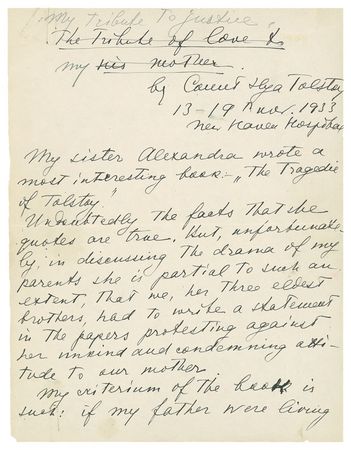 My tribute to justice.
The Tribute of love to
my his mother.
by Count Ilya Tolstoy
13-19 nov. 1933
New Haven Hospital
My sister Alexandra wrote a
most interesting book - „The Tragedie
of Tolstoy."
Undoubtedly the facts that she
quotes are true. But, unfortunate-
ly, in discussing the drama of my
parents she is partial to such an
extent, that we, her three eldest
brothers, had to write a statement
in the papers protesting against
her unkind and condemning atti-
tude to our mother.
My criterium of the book is
such: if my father were living